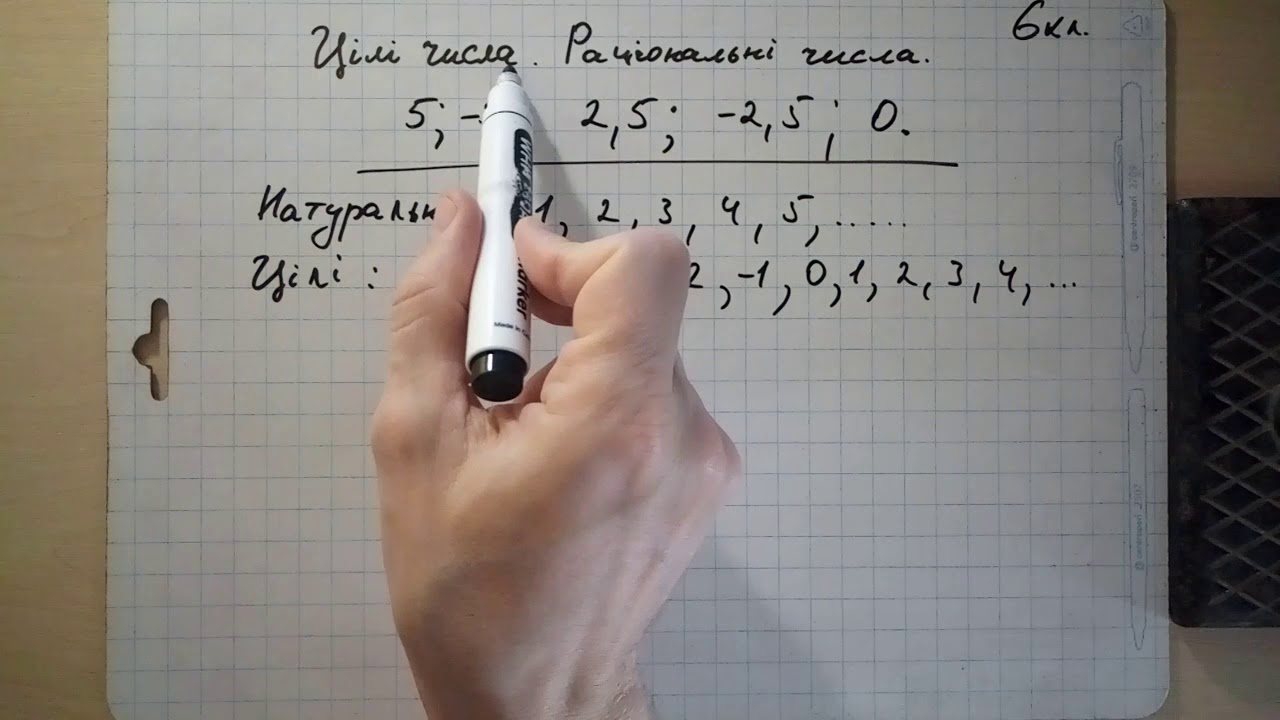 6кл.
Цілі числа. Раціональні числа.
5; - 2,5; -2,5; 0.
Натуральн 1, 2, 3, 4, 5, ......
Цілі : 2, -1, 0, 1, 2, 3, 4, ...